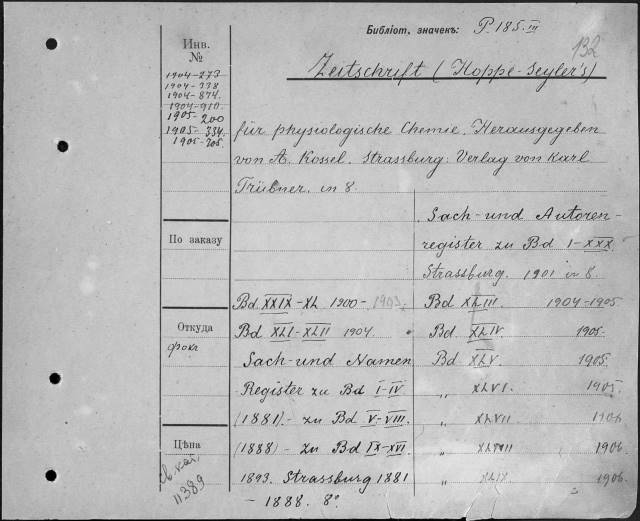 Библіот, значекъ: P. 185. III
132
Zeitschrift (Hoppe-Seyler's)
für physiologische Chemie. Herausgegeben
von A. Kossel. Strassburg. Verlag von Karl
Trübner. in 8.
Инв.
№
1904-273
1904-738
1904-874
1904-910
1905-200
1905-334
1905-705
По заказу
Откуда
фокл
Цѣна
11389
Bd. XXIX-XL 1900-1903.
Bd XLI-XLII 1904.
Sach-und Namen
Register zu Bd I-IV
(1881).- zu Bd V-VIII.
(1888) - zu Bd IX-XVI
1893. Strassburg 1881
- 1888. 8°
Sach-und Autoren-
register zu Bd I-XXX
Strassburg. 1901 in 8.
Bd XLIII. 1904-1905
Bd XLIV 1905.
Bd XLV. 1905
„ XLVI. 1905
„ XLVII 1906
„ XLVIII 1906
„ XLIX 1906